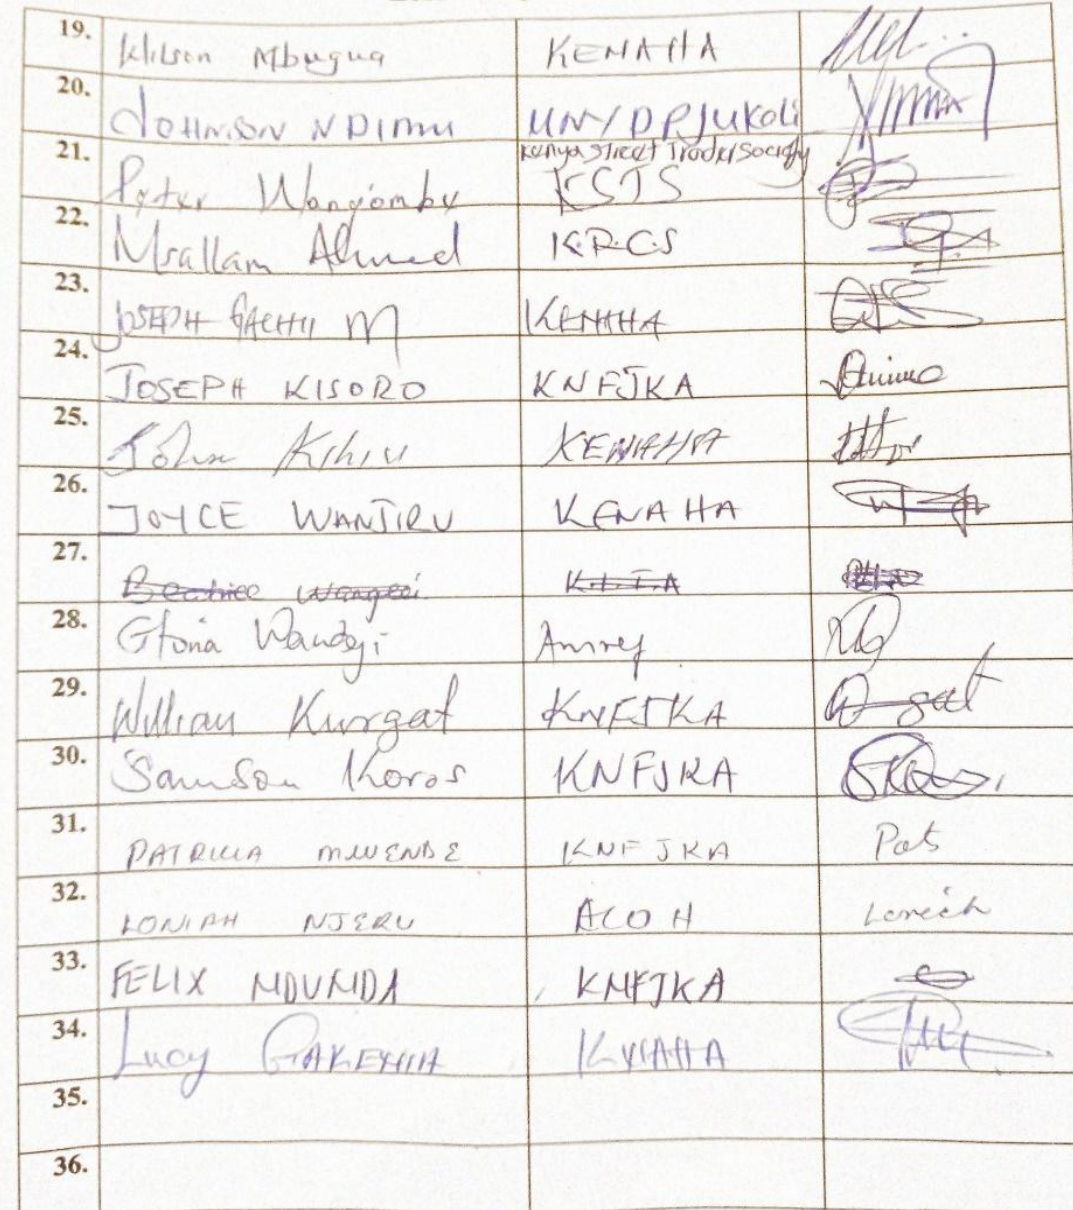 19. Wilson Mbugua KENAHA
20. JOHNSON NDIMU UN/DPJUKoli
21. Kenya Street Trader Society
Peter Wangombe KSTS
22. Msallam Ahmed K.R.C.S
23. JOSEPH GACHII M KENAHA
24. JOSEPH KISORO KNFJKA
25. John Kihiu KENAHA
26. JOYCE WANJIRU KENAHA
27. Beatrice Wangeci
28. Gloria Wandeji Amref
29. William Kurgat KNFJKA
30. Samson Koros KNFJKA
31. PATRICIA MWENDE KNFJKA Pats
32. LONIAH NJERU ACOH Loniah
33. FELIX NDUNDA KNFJKA
34. Lucy GAKENIA
35.
36.